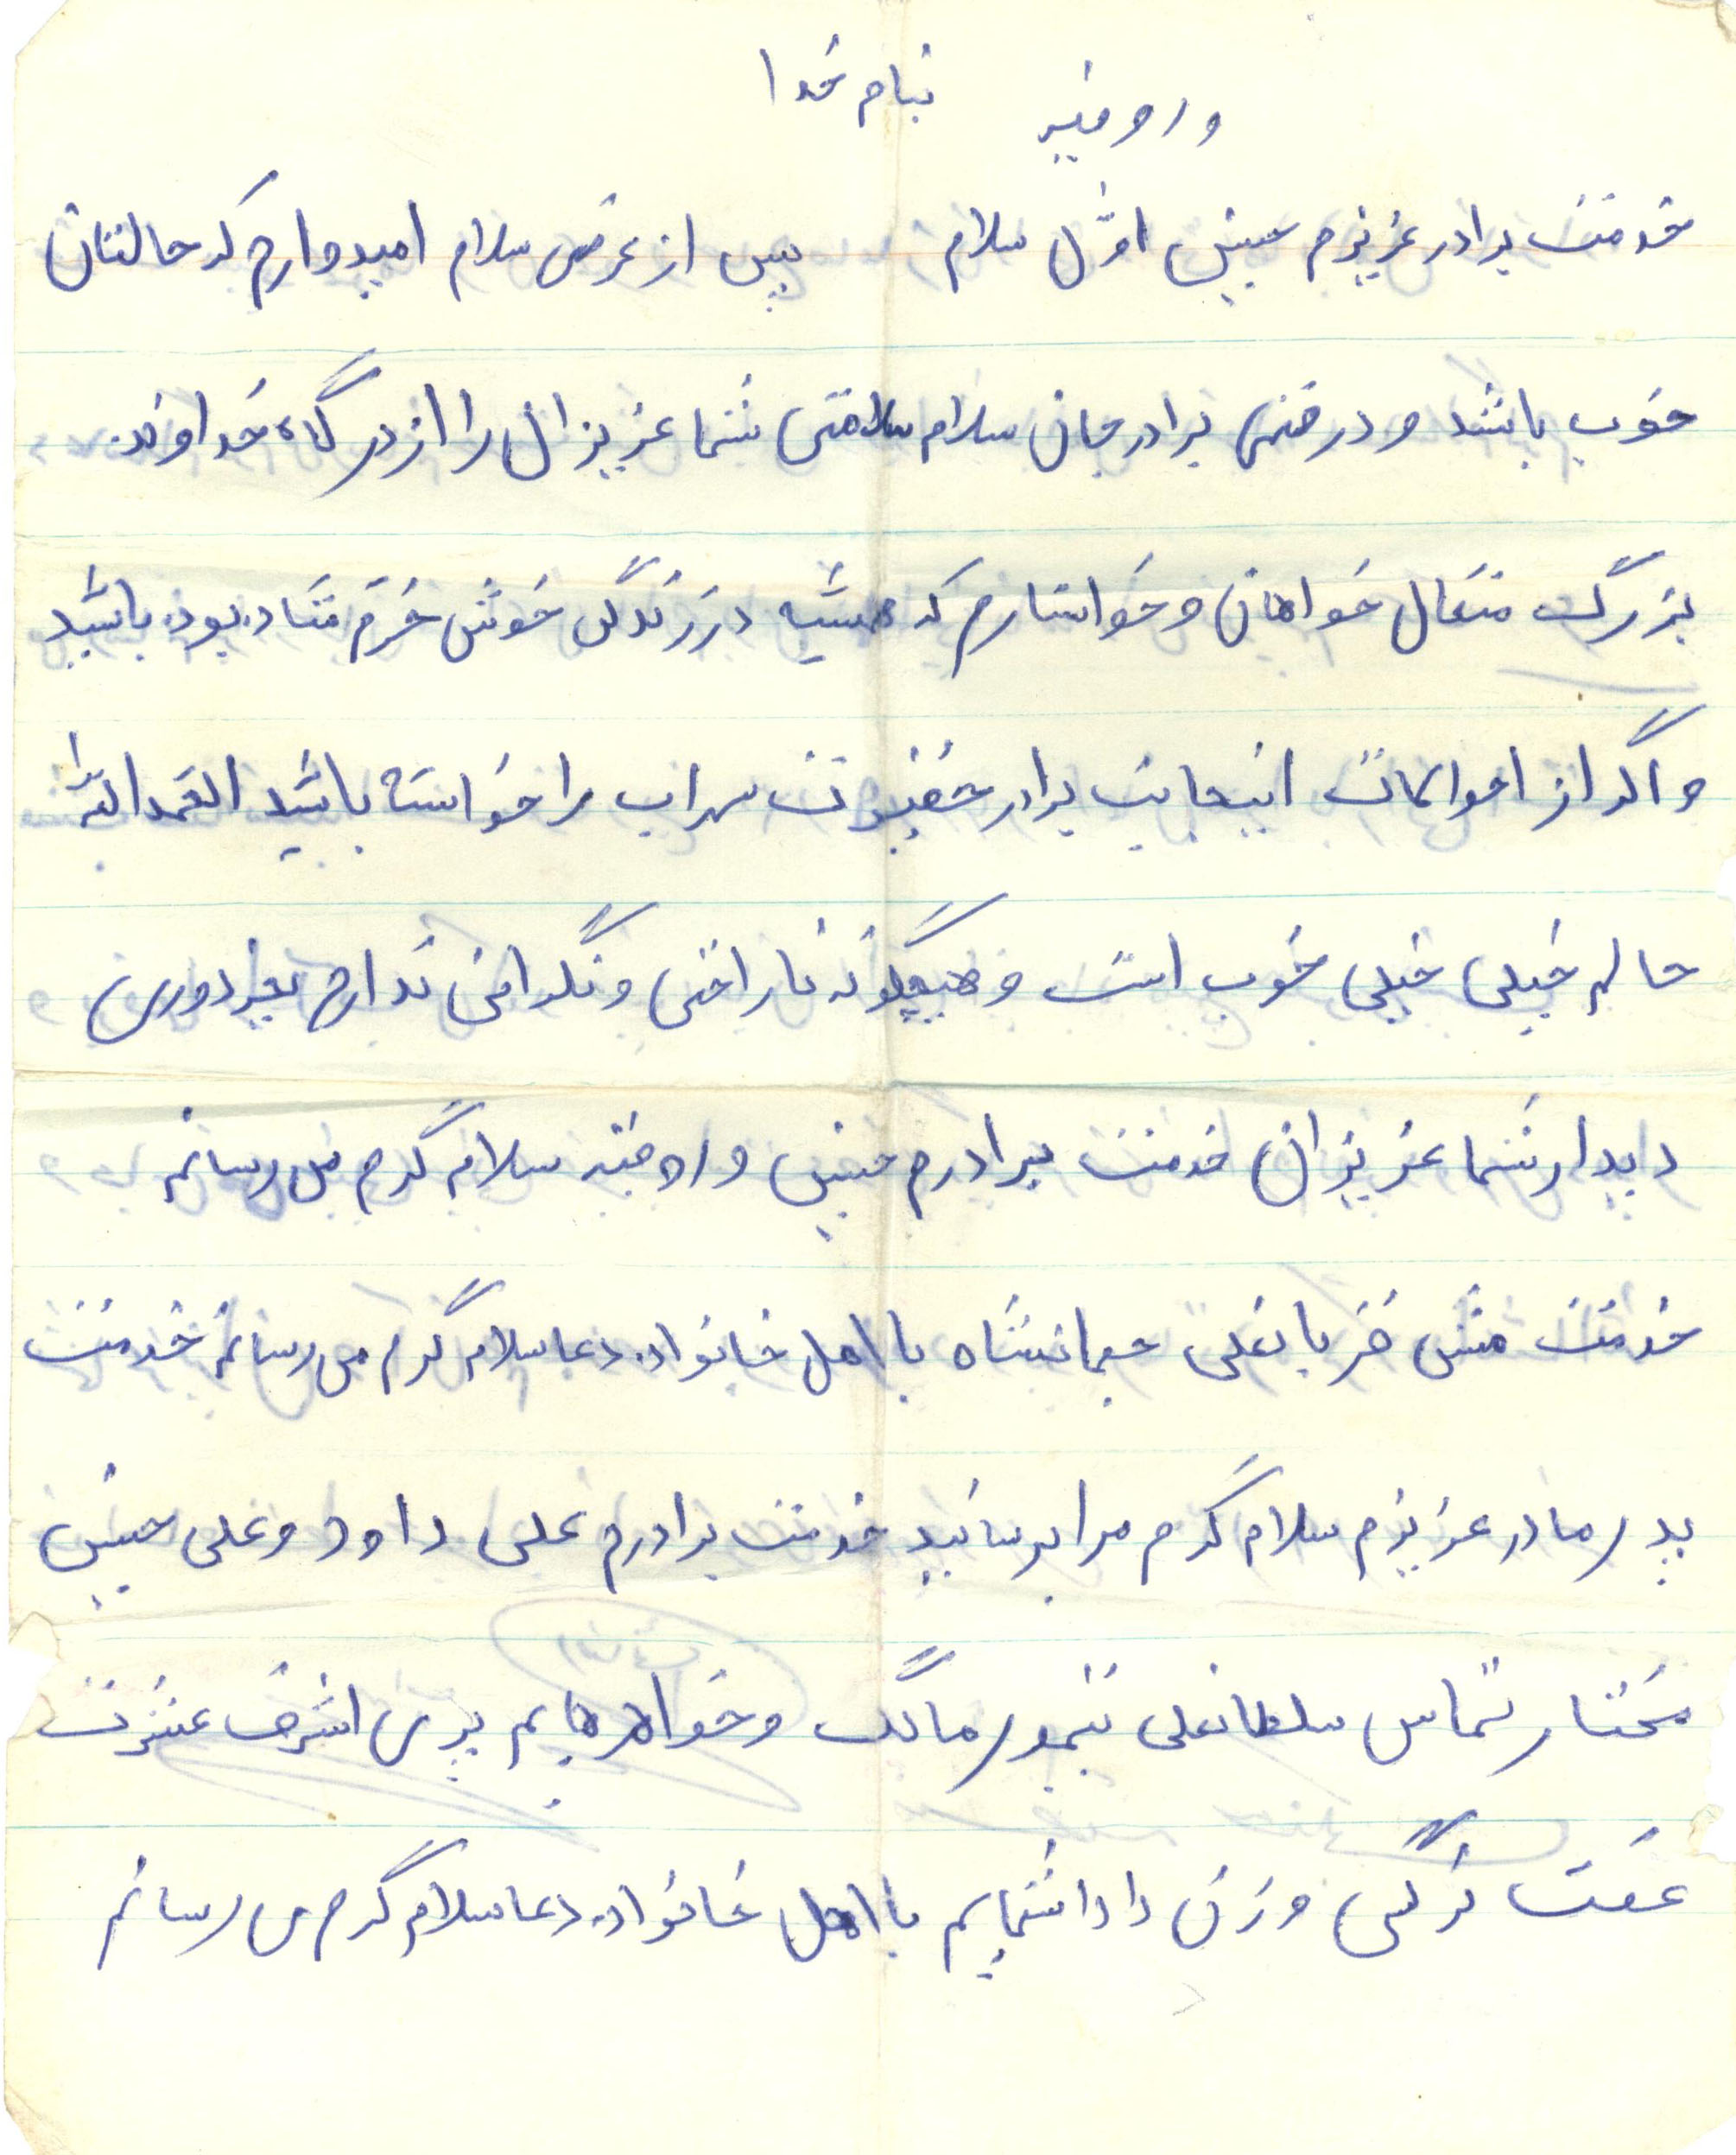 بنام خدا
خدمت برادر عزیزم حسین اول سلام پس از عرض سلام امیدوارم که حالتان
خوب باشد و در ضمن برادر جان سلام سلامتی شما عزیزان را از درگاه خداوند
بزرگ متعال خواهان و خواستارم که همیشه در زندگی خوش خرم شاد بوده باشید
و اگر از احوالات اینجانب برادر حقیرت سهراب را خواسته باشید الحمدالله
حالم خیلی خیلی خوب است و هیچگونه ناراحتی و نگرانی ندارم بجز دوری
دیدار شما عزیزان خدمت برادرم حسین و سلام گرم می رسانم
خدمت مش قربانعلی جهانشاه با اهل خانواده دعا سلام گرم می رسانم خدمت
پدر مادر عزیزم سلام گرم مرا برسانید خدمت برادرم علی داود و علی حسین
مختار تماس سلطانعلی تیمور مالک و خواهرهایم پری اشرف عشرت
عفت نرگس و زن داداشهایم با اهل خانواده دعا سلام گرم می رسانم